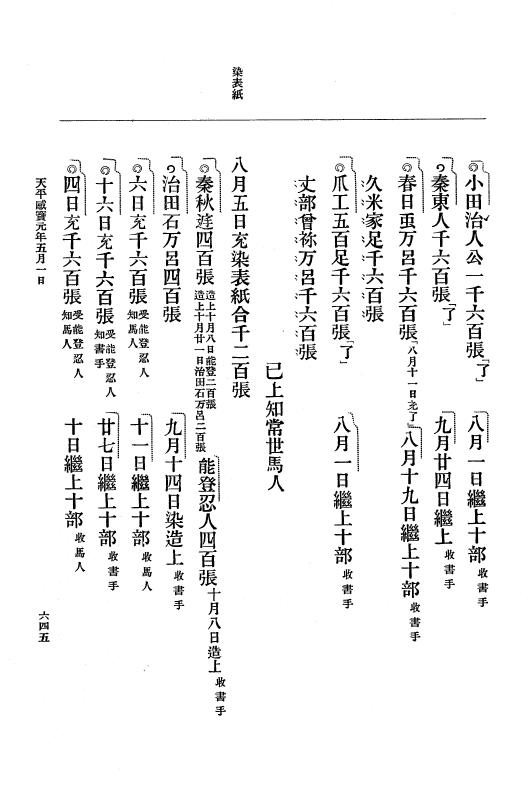 染表紙
◎小田治人公一千六百張「了」　八月一日繼上十部收書手
秦東人千六百張「了」　九月廿四日繼上收書手
◎春日虫万呂千六百張「八月十一日充了」　八月十九日繼上十部收書手
久米家足千六百張
◎爪工五百足千六百張「了」　八月一日繼上十部收書手
丈部曾祢万呂千六百張
已上知常世馬人
八月五日充染表紙合千二百張
◎秦秋庭四百張造上十月八日能登二百張造上十月廿一日治田石万呂二百張　能登忍人四百張十月八日造上收書手
治田石万呂四百張　九月十四日染造上收書手
◎六日充千六百張受能登忍人知馬人　十一日繼上十部收馬人
◎十六日充千六百張受能登忍人知書手　廿七日繼上十部收書手
◎四日充千六百張受能登忍人知馬人　十日繼上十部收馬人
天平感寶元年五月一日
六四五